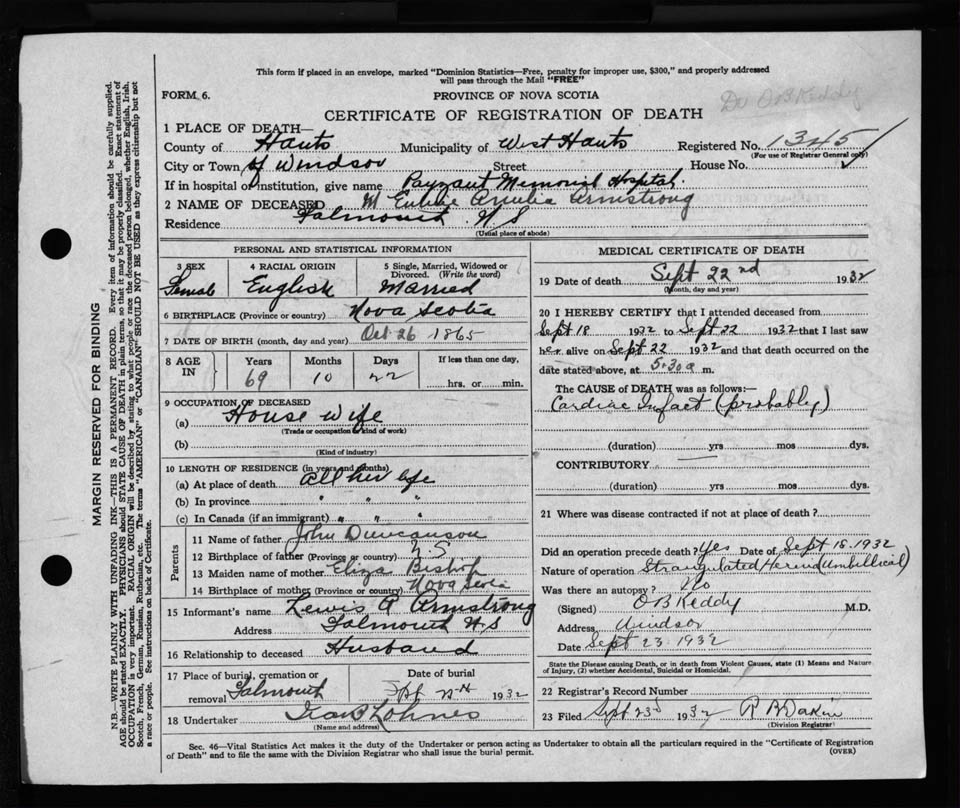 This form if placed in an envelope, marked "Dominion Statistics—Free, penalty for improper use, $300," and properly addressed
will pass through the Mail "FREE"
FORM 6.
PROVINCE OF NOVA SCOTIA
Dr OBKeddy
CERTIFICATE OF REGISTRATION OF DEATH
1 PLACE OF DEATH—
County of Hants Municipality of West Hants Registered No. 1345
(For use of Registrar General only)
City or Town of Windsor Street House No.
If in hospital or institution, give name Payzant Memorial Hospital
2 NAME OF DECEASED M Amelia Armstrong
Residence Falmouth N.S
(Usual place of abode)
PERSONAL AND STATISTICAL INFORMATION
3 SEX 4 RACIAL ORIGIN 5 Single, Married, Widowed or Divorced. (Write the word)
Female English Married
6 BIRTHPLACE (Province or country) Nova Scotia
7 DATE OF BIRTH (month, day and year) Oct 26 1865
8 AGE IN Years Months Days If less than one day,
69 10 22 hrs. or min.
9 OCCUPATION OF DECEASED
(a) House wife
(Trade or occupation or kind of work)
(b)
(Kind of industry)
10 LENGTH OF RESIDENCE (in years and months)
(a) At place of death All her life
(b) In province " " "
(c) In Canada (if an immigrant) " " "
Parents
11 Name of father John Duncanson
12 Birthplace of father (Province or country) N.S
13 Maiden name of mother Eliza Bishop
14 Birthplace of mother (Province or country) Nova Scotia
15 Informant's name Lewis A Armstrong
Address Falmouth N.S
16 Relationship to deceased Husband
17 Place of burial, cremation or removal Falmouth Date of burial Sept 1932
18 Undertaker
(Name and address)
MEDICAL CERTIFICATE OF DEATH
19 Date of death Sept 22nd 1932
(Month, day and year)
20 I HEREBY CERTIFY that I attended deceased from
Sept 18 1932 to Sept 22 1932 that I last saw
her alive on Sept 22 1932 and that death occurred on the
date stated above, at 5.30 a m.
The CAUSE of DEATH was as follows:—
Cardiac Infact (probably)
(duration) yrs mos dys.
CONTRIBUTORY
(duration) yrs mos dys.
21 Where was disease contracted if not at place of death?
Did an operation precede death? Yes Date of Sept 18.1932
Nature of operation Strangulated Hernia (Umbilical)
Was there an autopsy? No
(Signed) OBKeddy M.D.
Address Windsor
Date Sept 23.1932
State the Disease causing Death, or in death from Violent Causes, state (1) Means and Nature
of Injury, (2) whether Accidental, Suicidal or Homicidal.
22 Registrar's Record Number
23 Filed Sept 23d 1932 R B Dakin
(Division Registrar)
Sec. 46—Vital Statistics Act makes it the duty of the Undertaker or person acting as Undertaker to obtain all the particulars required in the "Certificate of Registration
of Death" and to file the same with the Division Registrar who shall issue the burial permit. (OVER)
MARGIN RESERVED FOR BINDING
N.B.—WRITE PLAINLY WITH UNFADING INK—THIS IS A PERMANENT RECORD. Every item of information should be carefully supplied.
AGE should be stated EXACTLY. PHYSICIANS should STATE CAUSE OF DEATH in plain terms, so that it may be properly classified. Exact statement of
OCCUPATION is very important. RACIAL ORIGIN will be described by stating to what people or race the deceased person belonged, whether English, Irish,
Scotch, French, German, Russian, Ruthenian, etc. The terms "AMERICAN" or "CANADIAN" SHOULD NOT BE USED as they express citizenship but not
a race or people. See instructions on back of Certificate.